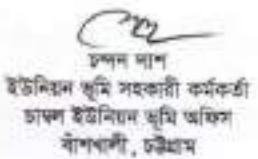 চন্দন দাশ
ইউনিয়ন ভূমি সহকারী কর্মকর্তা
চাম্বল ইউনিয়ন ভূমি অফিস
বাঁশখালী, চট্টগ্রাম